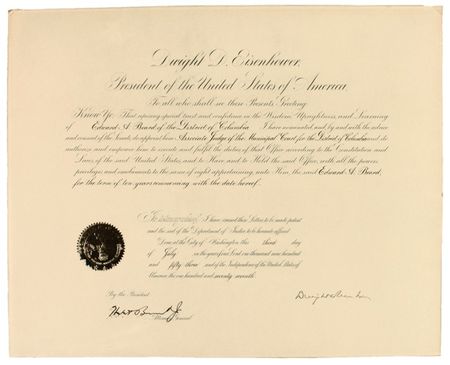 Dwight D. Eisenhower,
President of the United States of America,
To all who shall see these Presents, Greeting:
Know Ye: That reposing special trust and confidence in the Wisdom, Uprightness, and Learning
of Edward A. Beard of the District of Columbia I have nominated, and, by and with the advice
and consent of the Senate, do appoint him Associate Judge of the Municipal Court for the District of Columbia and do
authorize and empower him to execute and fulfil the duties of that Office according to the Constitution and
Laws of the said United States, and to Have and to Hold the said Office, with all the powers,
privileges and emoluments to the same of right appertaining, unto Him, the said Edward A. Beard,
for the term of ten years commencing with the date hereof.
In testimony whereof, I have caused these Letters to be made patent
and the seal of the Department of Justice to be hereunto affixed.
Done at the City of Washington this third day
of July in the year of our Lord one thousand nine hundred
and fifty three and of the Independence of the United States of
America the one hundred and seventy seventh.
By the President:
Dwight Eisenhower
Attorney General